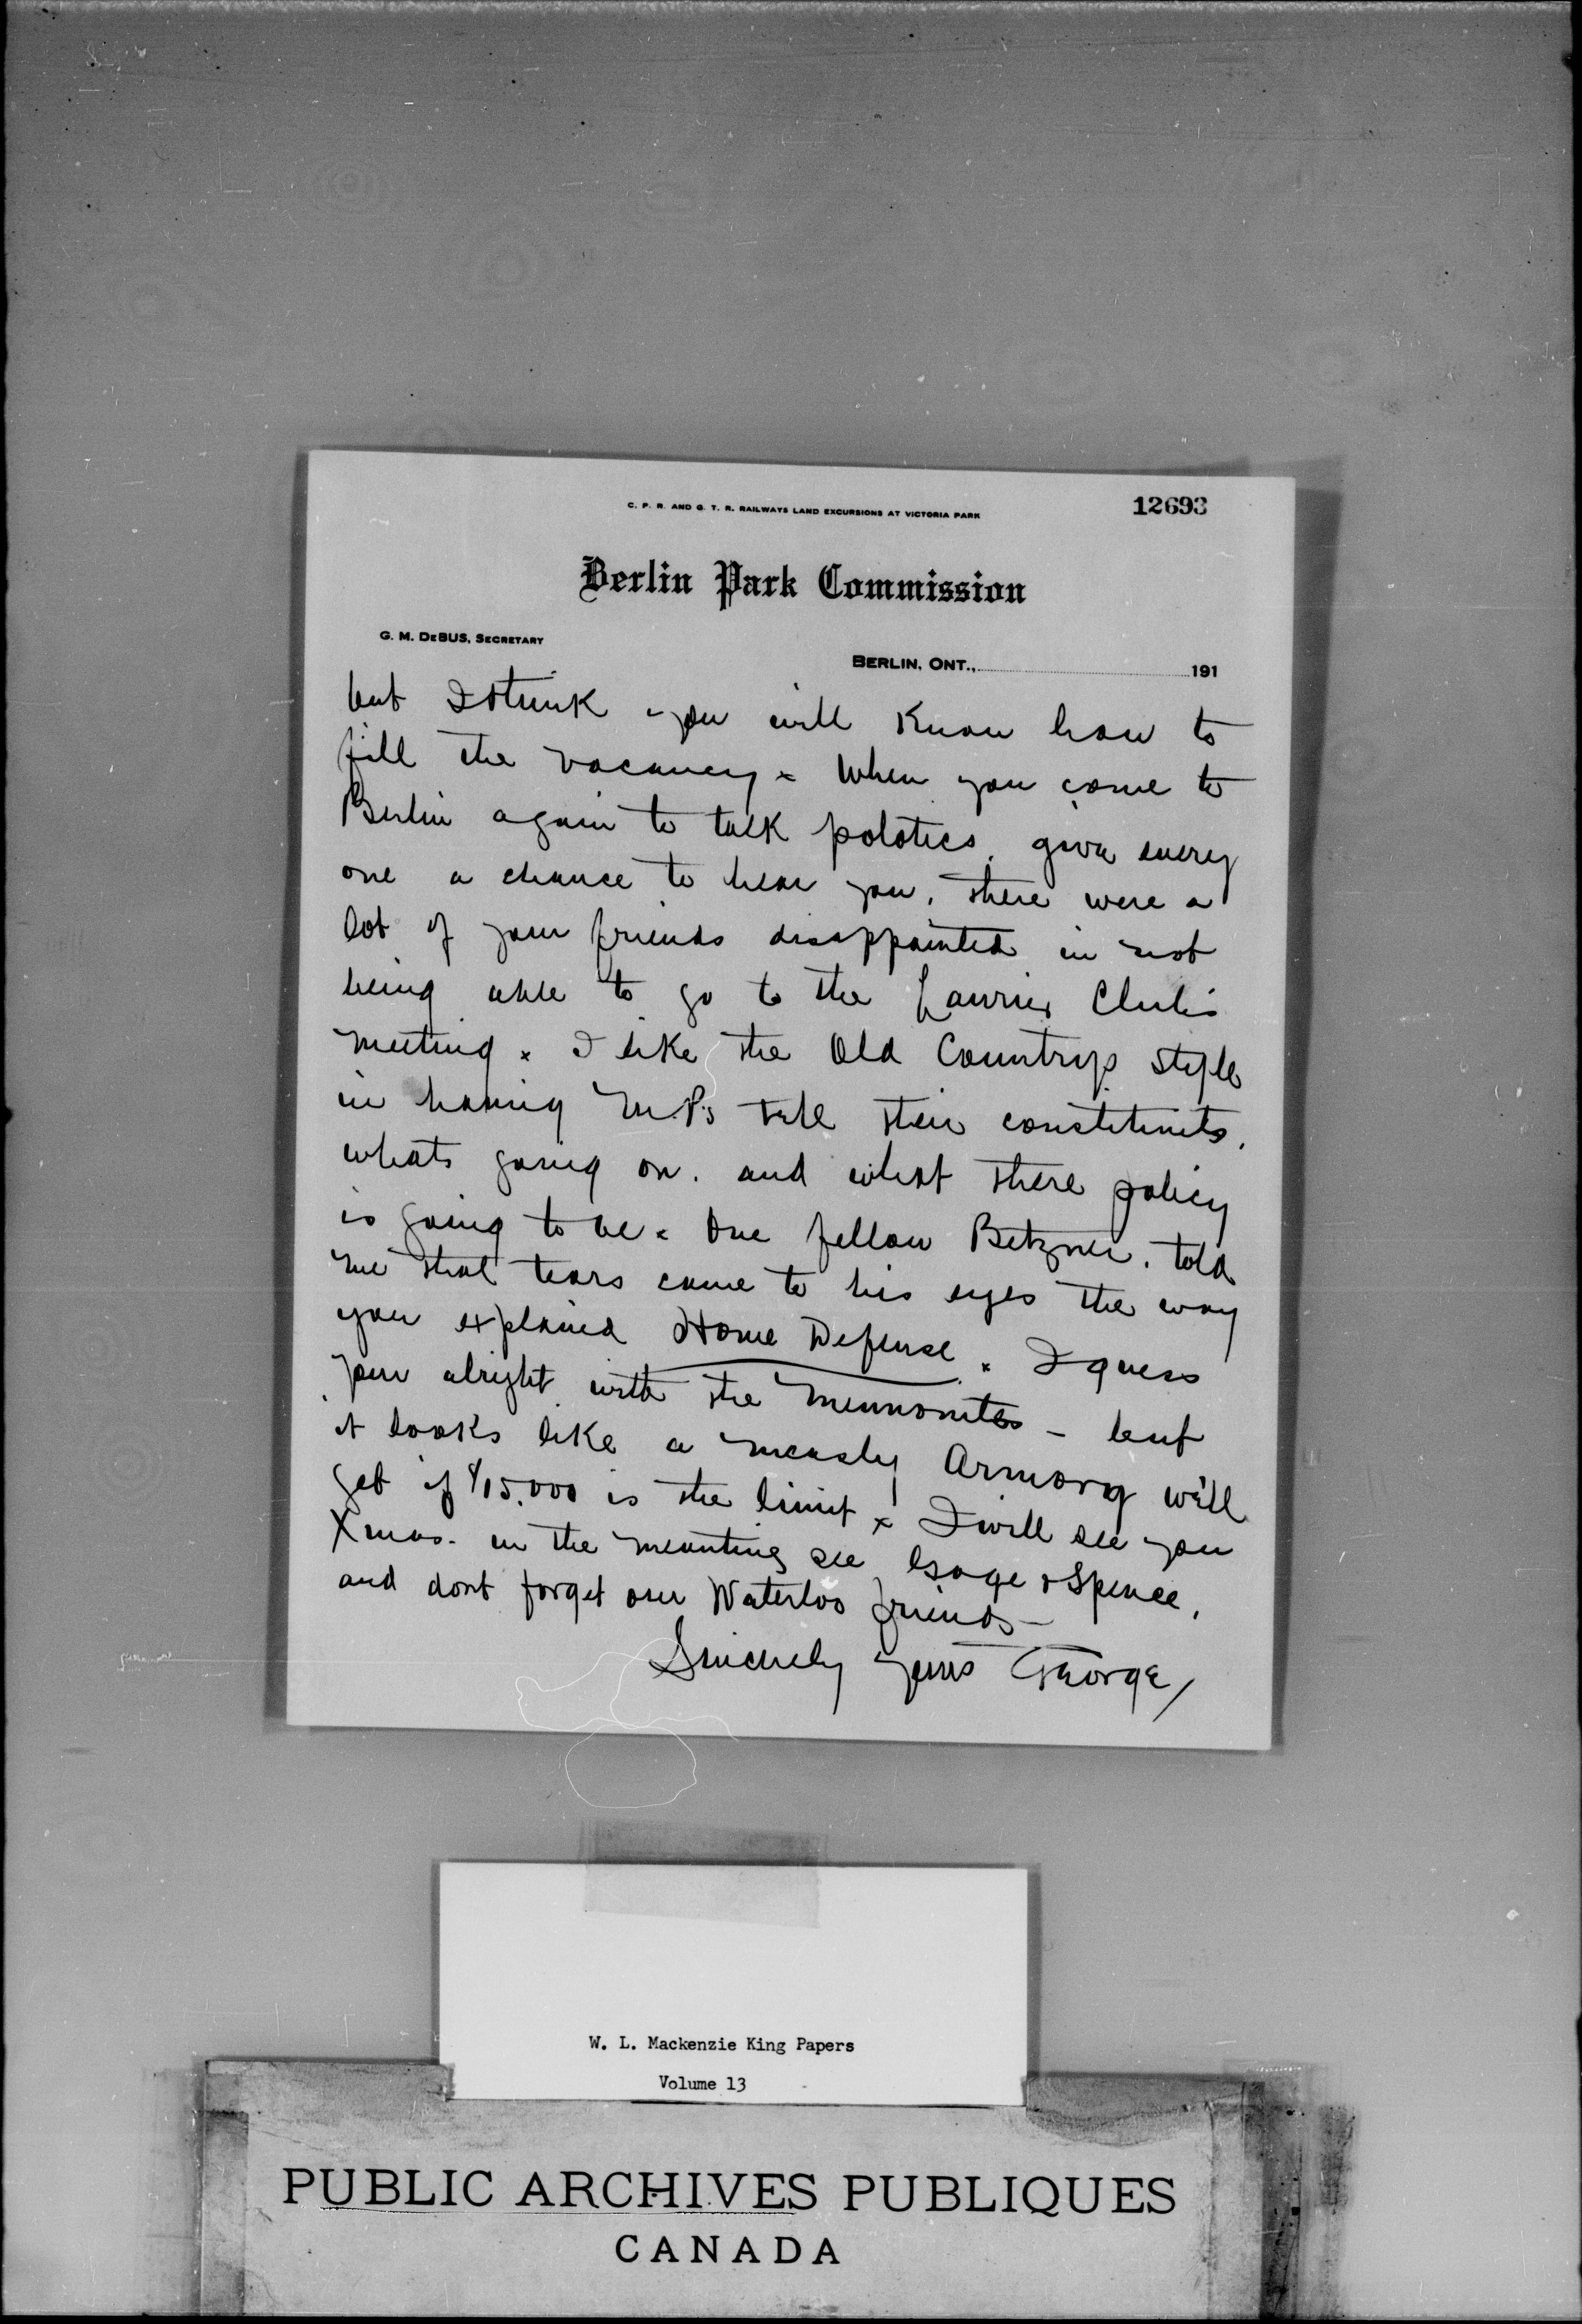 C. P. R. AND G. T. R. RAILWAYS LAND EXCURSIONS AT VICTORIA PARK
12693
Berlin Park Commission
G. M. DeBUS, SECRETARY
BERLIN, ONT., 191
but I think you will know how to
fill the vacancy x When you come to
Berlin again to talk polotics, give every
one a chance to hear you, there were a
lot of your friends disappointed in not
being able to go to the Laurier Club's
meeting x I like the Old Country's style
in having M.P's tell their constituents,
whats going on, and what there policy
is going to be x One fellow Betzner, told
me that tears came to his eyes the way
you explained Home Defense x I guess
your alright with the Mennonites – but
it looks like a measly Armory we'll
get if $15.000 is the limit x I will see you
Xmas. in the meantime see Gage & Spence,
and dont forget our Waterloo friends –
Sincerely yours George
W. L. Mackenzie King Papers
Volume 13
PUBLIC ARCHIVES PUBLIQUES
CANADA